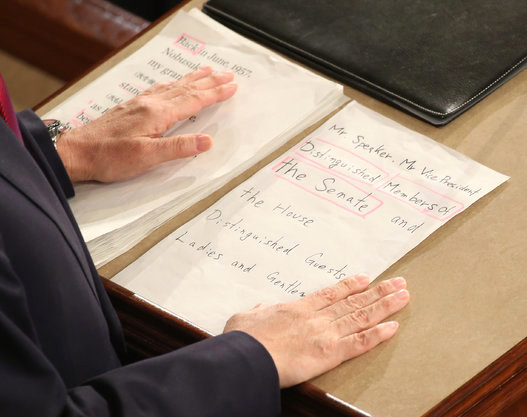 Back in June, 1957,
Nobusuke
my grand
standing
as
be
Mr Speaker. Mr Vice President
Distinguished Members of
the Senate and
the House
Distinguished Guests
Ladies and Gentlem